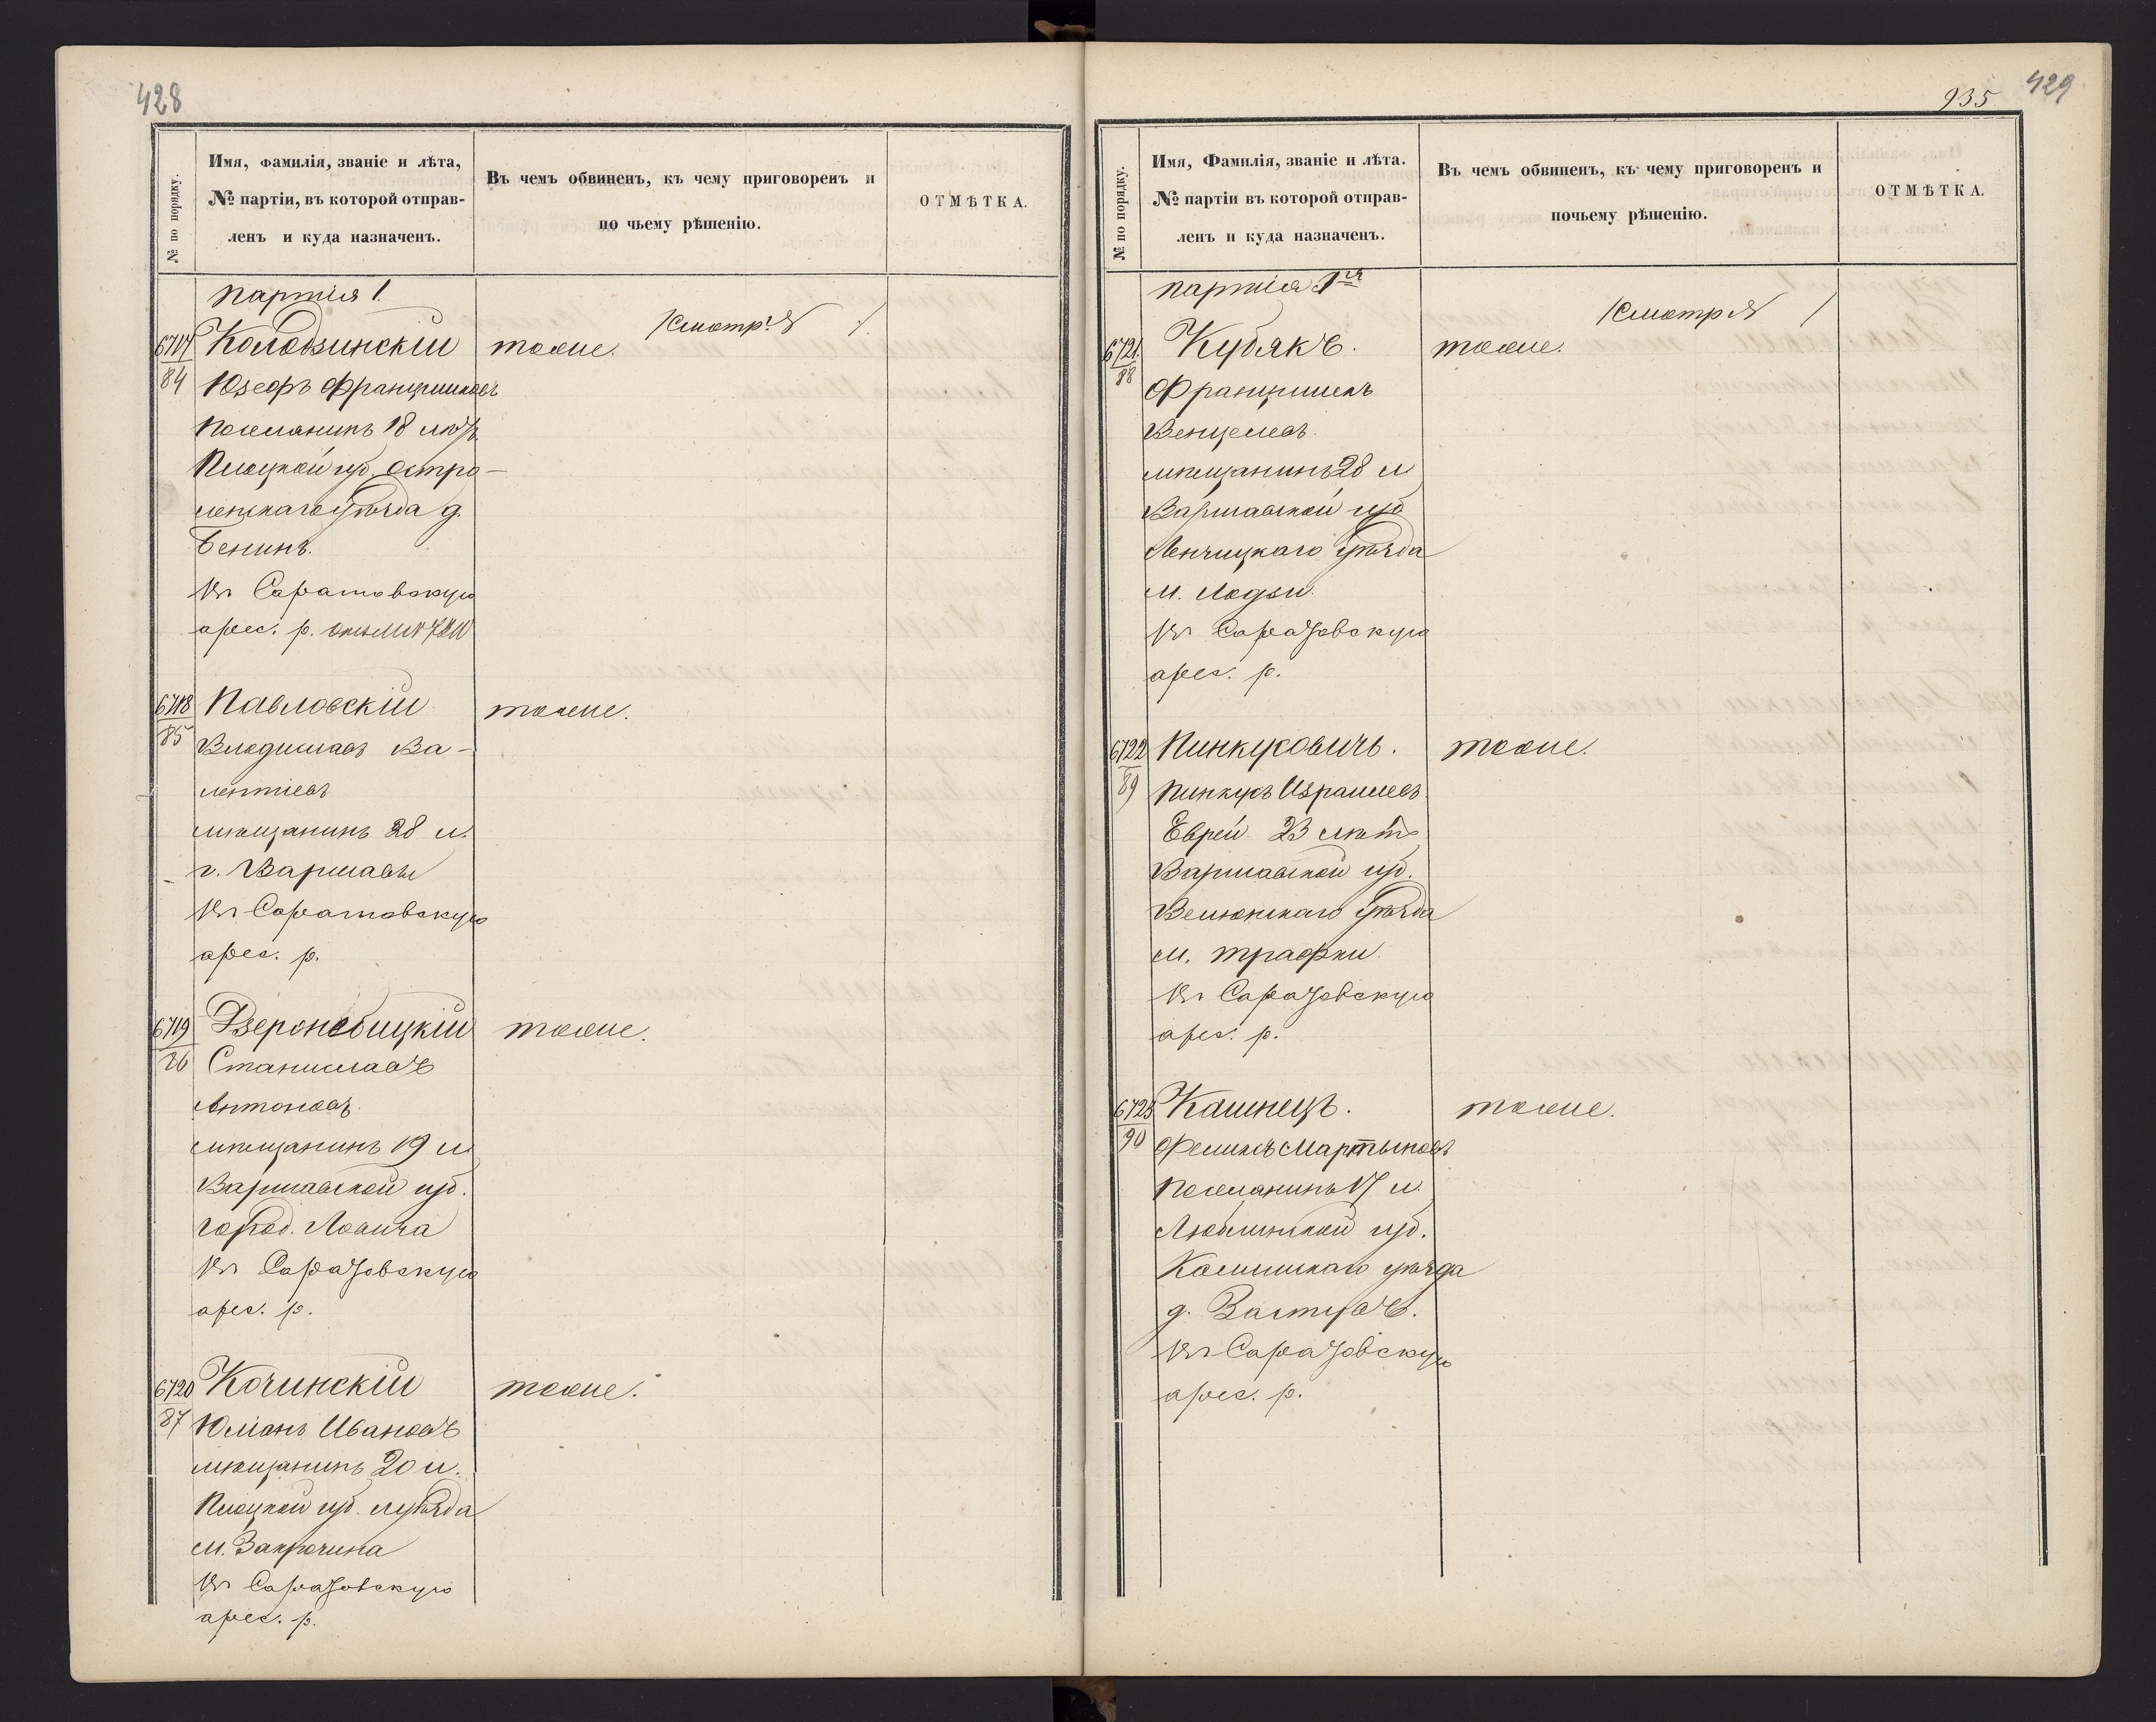 428
№ по порядку.
Имя, фамилія, званіе и лѣта,
№ партіи, въ которой отправ-
ленъ и куда назначенъ.
Въ чемъ обвиненъ, къ чему приговоренъ и
по чьему рѣшенію.
ОТМѢТКА.
партія 1.
/Смотр. № /.
6717/84 Колодзинскій тоже.
Юзефъ Францишковъ
Поселянинъ 18 лѣтъ
Плоцкой губ. Остро-
ленскаго уѣзда д.
Бенинъ.
въ Саратовскую
арес. р.
6718/85 Павловскій тоже.
Владиславъ Ва-
лентіевъ
мѣщанинъ 28 л.
г. Варшавы
въ Саратовскую
арес. р.
6719/86 тоже.
Станиславъ
Антоновъ
мѣщанинъ 19 л.
Варшавской губ.
город. Ловича
въ Саратовскую
арес. р.
6720/87 Кочинскій тоже.
Юліанъ Ивановъ
мѣщанинъ 20 л.
Плоцкой губ. уѣзда
м. Закрочина
въ Саратовскую
арес. р.
935 429
№ по порядку.
Имя, Фамилія, званіе и лѣта.
№ партіи въ которой отправ-
ленъ и куда назначенъ.
Въ чемъ обвиненъ, къ чему приговоренъ и
почьему рѣшенію.
ОТМѢТКА.
партія 1я
/Смотр № /
6721/88 Кубякъ. тоже.
Францишекъ
Венцелевъ.
мѣщанинъ 28 л
Варшавской губ
Ленчицкаго уѣзда
м. Лодзи.
въ Саратовскую
арес. р.
6722/89 Пинкусовичъ. тоже.
Пинкусъ Израилевъ.
Еврей 23 лѣтъ
Варшавской губ.
Велюнскаго уѣзда
м.
въ Саратовскую
арес. р.
6723/90 Кашнецъ. тоже.
Феликсъ Мартыновъ
Поселянинъ 17 л.
Люблинской губ.
уѣзда
д.
въ Саратовскую
арес. р.